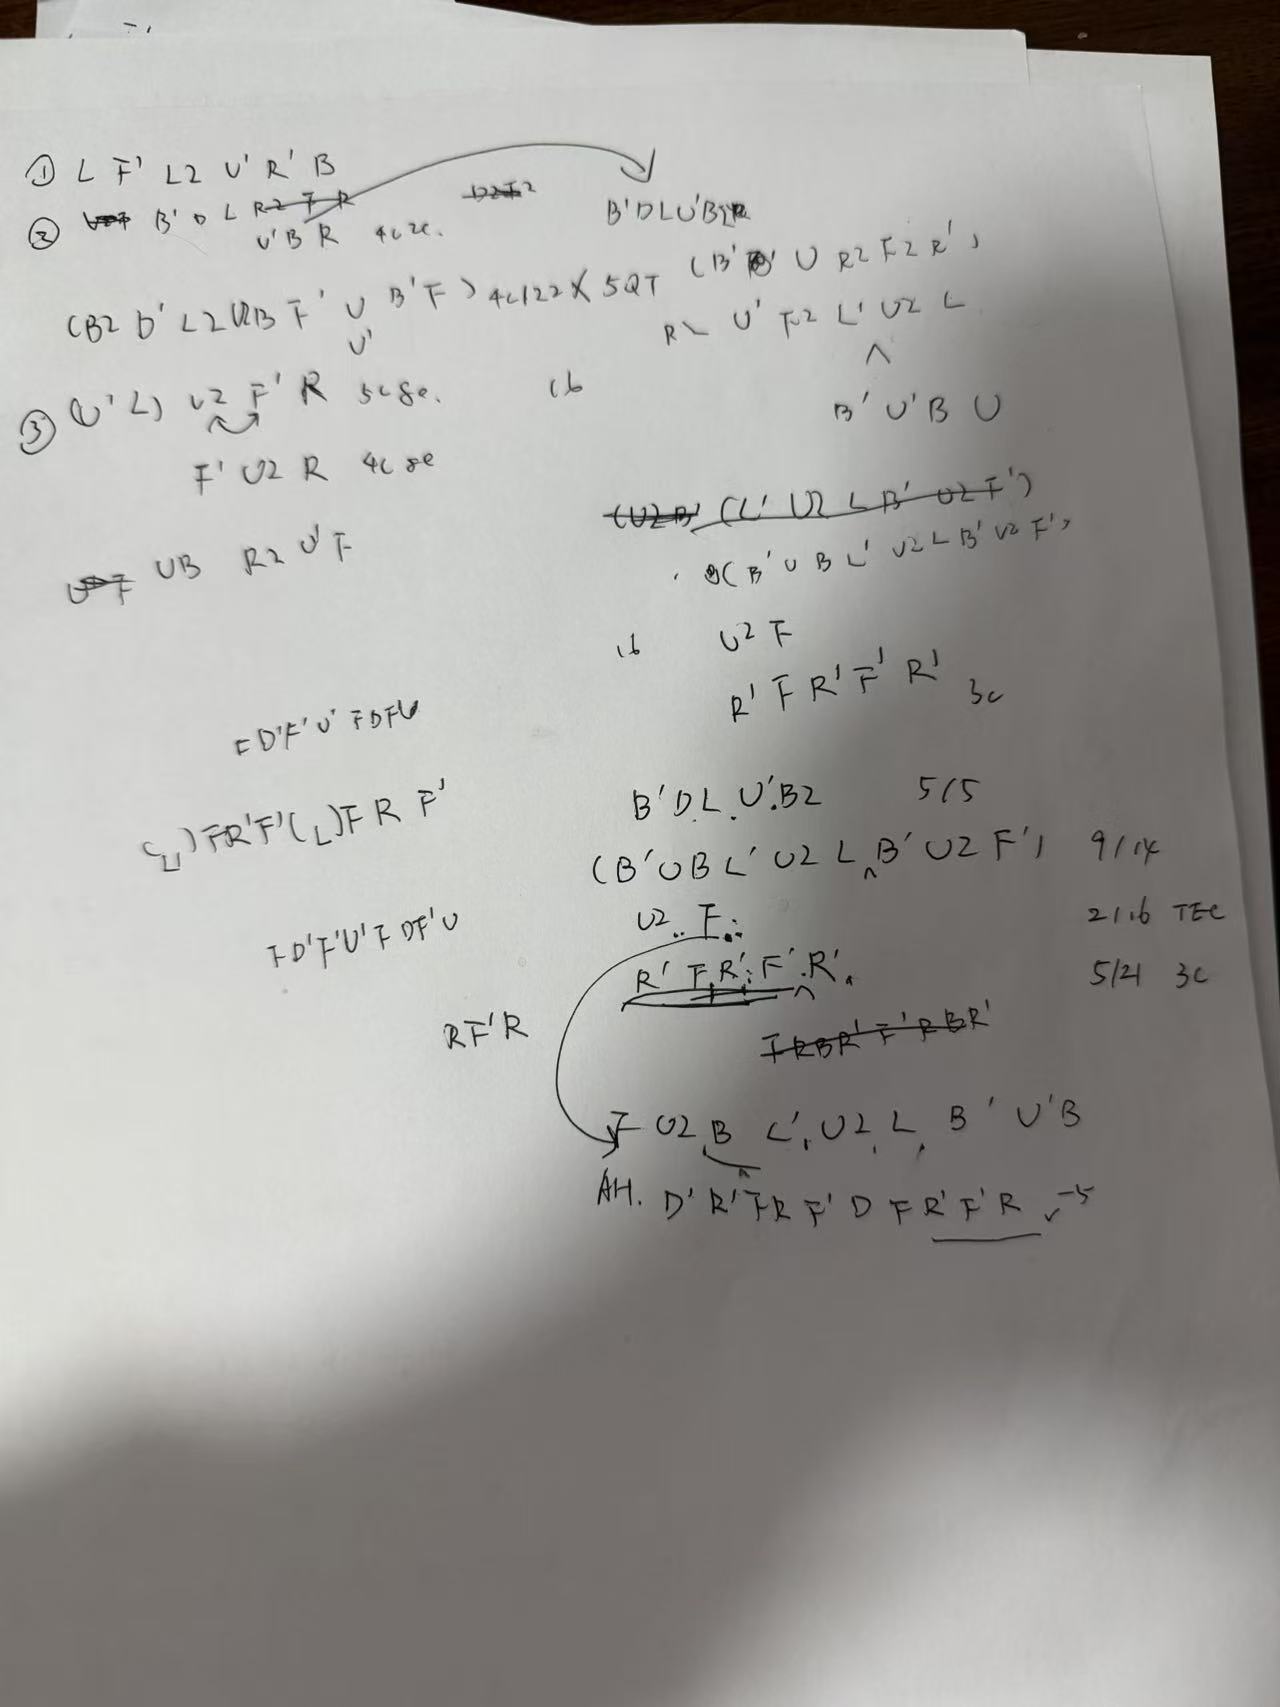 ① L F' L2 U' R' B
② B' D L R2 F R
U' B R 4c2e.
D2F2
B'DLU'B2R
(B2 D' L2 U2B F' U B'F) 4c122X 5QT
U'
(B' U R2 F2 R')
R U' F2 L' U2 L
^
B' U' B U
③ (U' L) U2 F' R 5c8e.
F' U2 R 4c8e
16
(U2 B' (L' U2 L B' U2 F')
UB R2 U' F
(B' U B L' U2 L B' U2 F')
16 U2 F
R' F R' F' R' 3c
F D'F' U' F D F U
B' D L U' B2 5/5
( ) F R' F' (L) F R F'
(B' U B L' U2 L B' U2 F') 9/14
F D' F' U' F D F' U
U2 F 2/16 TEC
R' F R' F' R' 5/21 3c
R F' R
F R B R' F' R B R'
F U2 B L' U2 L B' U' B
AH. D' R' F R F' D F R' F' R -5